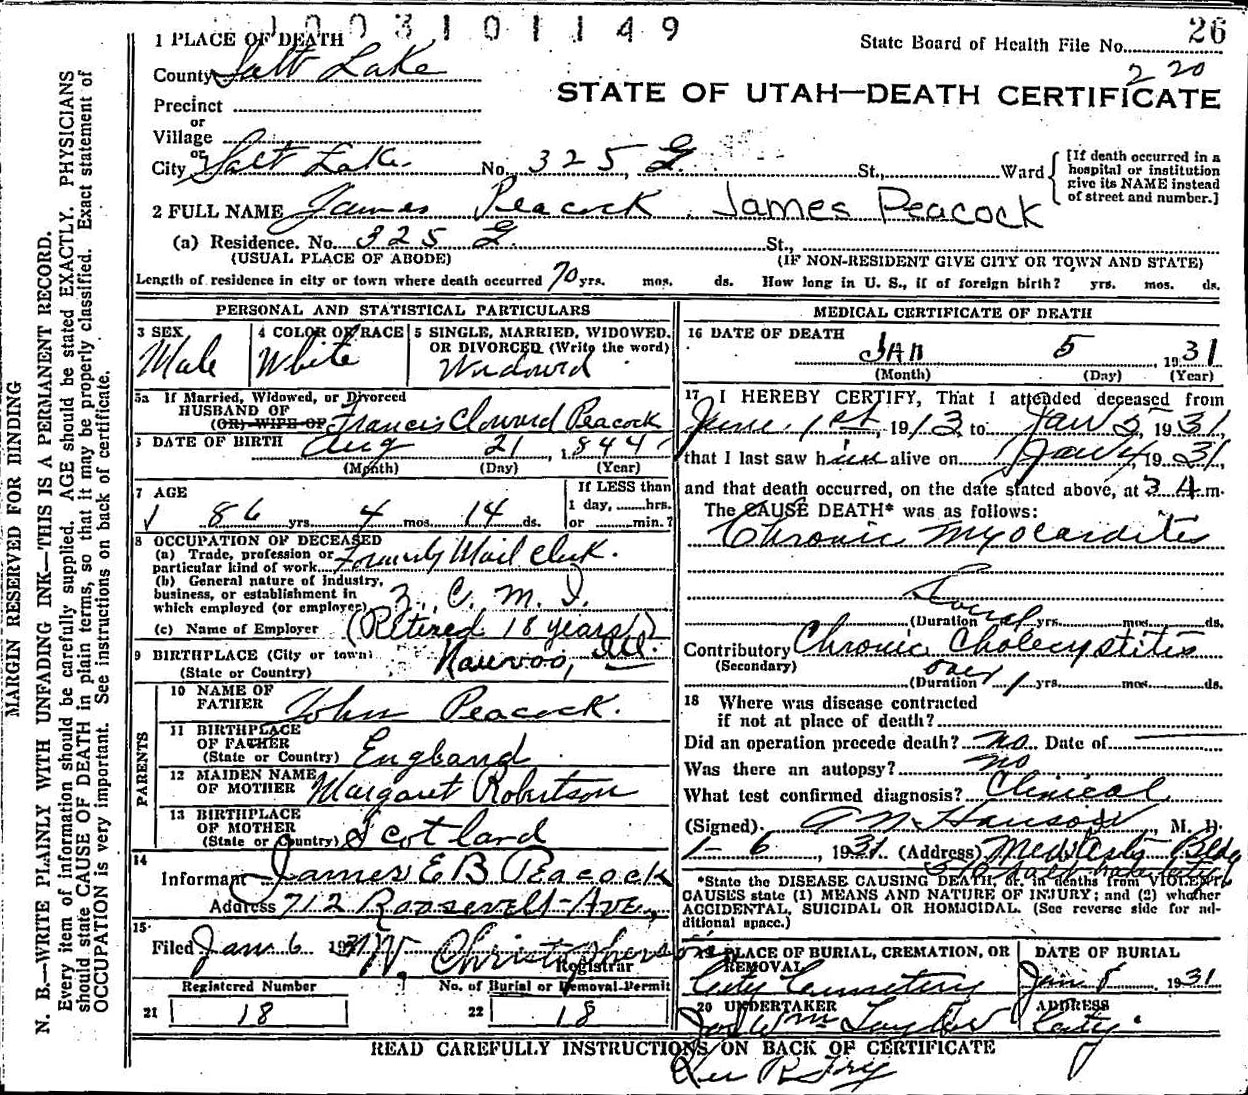 1003101149
26
State Board of Health File No.
220
STATE OF UTAH—DEATH CERTIFICATE
1 PLACE OF DEATH
County Salt Lake
Precinct
or
Village
or
City Salt Lake No. 325 G. St., Ward
[If death occurred in a
hospital or institution
give its NAME instead
of street and number.]
2 FULL NAME James Peacock James Peacock
(a) Residence. No. 325 G. St.,
(USUAL PLACE OF ABODE) (IF NON-RESIDENT GIVE CITY OR TOWN AND STATE)
Length of residence in city or town where death occurred 70 yrs. mos. ds. How long in U. S., if of foreign birth? yrs. mos. ds.
PERSONAL AND STATISTICAL PARTICULARS
3 SEX
Male
4 COLOR OR RACE
White
5 SINGLE, MARRIED, WIDOWED,
OR DIVORCED (Write the word)
Widowed
5a If Married, Widowed, or Divorced
HUSBAND OF
(OR) WIFE OF Francis Clowrd Peacock
6 DATE OF BIRTH Aug 21, 1844
(Month) (Day) (Year)
7 AGE
86 yrs. 4 mos. 14 ds.
If LESS than
1 day, hrs.
or min.?
8 OCCUPATION OF DECEASED
(a) Trade, profession or
particular kind of work Formerly Mail Clerk.
(b) General nature of industry,
business, or establishment in
which employed (or employer) Z. C. M. I.
(c) Name of Employer (Retired 18 years)
9 BIRTHPLACE (City or town) Nauvoo, Ill.
(State or Country)
PARENTS
10 NAME OF
FATHER John Peacock.
11 BIRTHPLACE
OF FATHER
(State or Country) England
12 MAIDEN NAME
OF MOTHER Margaret Robertson
13 BIRTHPLACE
OF MOTHER
(State or Country) Scotland
14
Informant James E B Peacock
Address 712 Roosevelt Ave,
15
Filed Jan 6 1931 W. Christopherson
Registrar
Registered Number
21 18
No. of Burial or Removal Permit
22 18
MEDICAL CERTIFICATE OF DEATH
16 DATE OF DEATH
JAN 5 1931
(Month) (Day) (Year)
17 I HEREBY CERTIFY, That I attended deceased from
June 1st, 1913 to Jan 5, 1931,
that I last saw him alive on Jan 4, 1931,
and that death occurred, on the date stated above, at 3 A.m.
The CAUSE DEATH* was as follows:
Chronic Myocarditis
Several
(Duration yrs. mos. ds.
Contributory Chronic Cholecystitis
(Secondary)
over
(Duration 1 yrs. mos. ds.
18 Where was disease contracted
if not at place of death?
Did an operation precede death? no Date of
Was there an autopsy? no
What test confirmed diagnosis? Clinical
(Signed) A N Hanson, M. D.
1-6, 1931. (Address) Bldg
*State the DISEASE CAUSING DEATH, or, in deaths from VIOLENT
CAUSES state (1) MEANS AND NATURE OF INJURY; and (2) whether
ACCIDENTAL, SUICIDAL OR HOMICIDAL. (See reverse side for ad-
ditional space.)
19 PLACE OF BURIAL, CREMATION, OR
REMOVAL
City Cemetery
DATE OF BURIAL
Jan 8 1931
20 UNDERTAKER
Jos Wm Taylor
ADDRESS
City.
READ CAREFULLY INSTRUCTIONS ON BACK OF CERTIFICATE
MARGIN RESERVED FOR BINDING
N. B.—WRITE PLAINLY WITH UNFADING INK—THIS IS A PERMANENT RECORD.
Every item of information should be carefully supplied. AGE should be stated EXACTLY. PHYSICIANS
should state CAUSE OF DEATH in plain terms, so that it may be properly classified. Exact statement of
OCCUPATION is very important. See instructions on back of certificate.